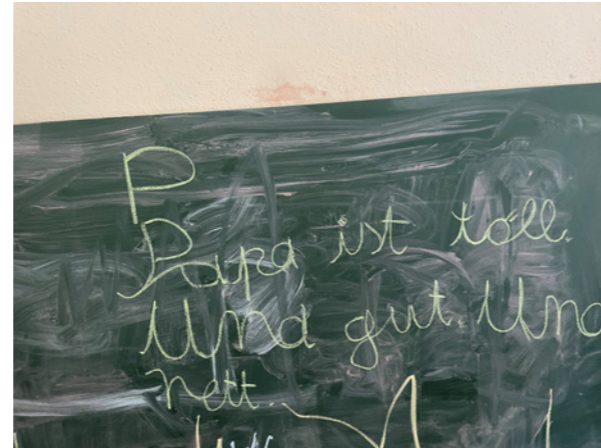 P
Papa ist toll.
Und gut. Und
nett.